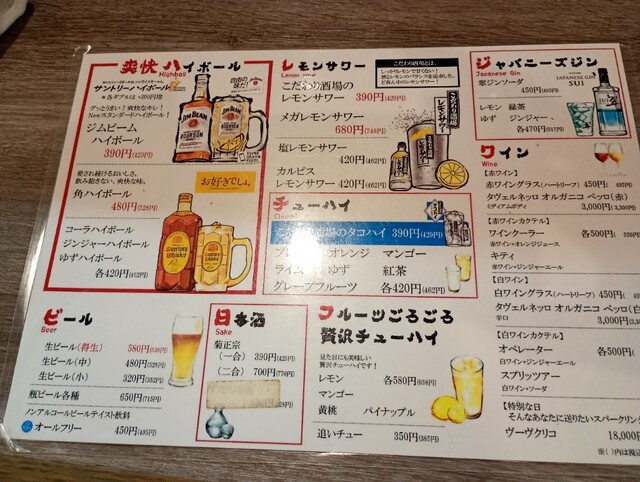 爽快 ハイボール
Highball
サントリーハイボール
・各ダブルは+200円増
グッとうまい!爽快なキレ!
Newスタンダードハイボール!
ジムビーム
ハイボール
390円(429円)
自由の味だ!
JIM BEAM
愛され続けるおいしさ。
飲み飽きない、爽快な味。
角ハイボール
480円(528円)
お好きでしょ。
コーラハイボール
ジンジャーハイボール
ゆずハイボール
各420円(462円)
レモンサワー
こだわり酒場の
レモンサワー 390円(429円)
メガレモンサワー
680円(748円)
塩レモンサワー
420円(462円)
カルピス
レモンサワー 420円(462円)
こだわり酒場とは、
しっかりレモンで甘くない!
こだわり酒場の
レモンサワー
チューハイ
こだわり酒場のタコハイ 390円(429円)
オレンジ マンゴー
ライム ゆず 紅茶
グレープフルーツ 各420円(462円)
ジャパニーズジン
Japanese Gin
翠ジンソーダ
450円(495円)
JAPANESE GIN
SUI
レモン 緑茶
ゆず ジンジャー
各470円(517円)
ワイン
Wine
【赤ワイン】
赤ワイングラス(ハートリーフ) 450円
タヴェルネッロ オルガニコ ベッロ(赤)
ミディアムボディ 3,000円(3,300円)
【赤ワインカクテル】
ワインクーラー 各500円
赤ワイン・オレンジジュース
キティ
赤ワイン・ジンジャーエール
【白ワイン】
白ワイングラス(ハートリーフ) 450円
タヴェルネッロ オルガニコ ベッロ(白)
辛口 3,000円
【白ワインカクテル】
オペレーター 各500円
白ワイン・ジンジャーエール
スプリッツァー
白ワイン・ソーダ
【特別な日
そんなあなたに送りたいスパークリング
ヴーヴクリコ 18,000
※( )内は税込
ビール
Beer
生ビール(得生) 580円(638円)
生ビール(中) 480円(528円)
生ビール(小) 320円(352円)
瓶ビール各種 650円(715円)
ノンアルコールビールテイスト飲料
オールフリー 450円(495円)
日本酒
Sake
菊正宗
(一合) 390円(429円)
(二合) 700円(770円)
フルーツごろごろ
贅沢チューハイ
見た目にも美味しい
贅沢チューハイです!
レモン 各580円(638円)
マンゴー
黄桃 パイナップル
追いチュー 350円(385円)